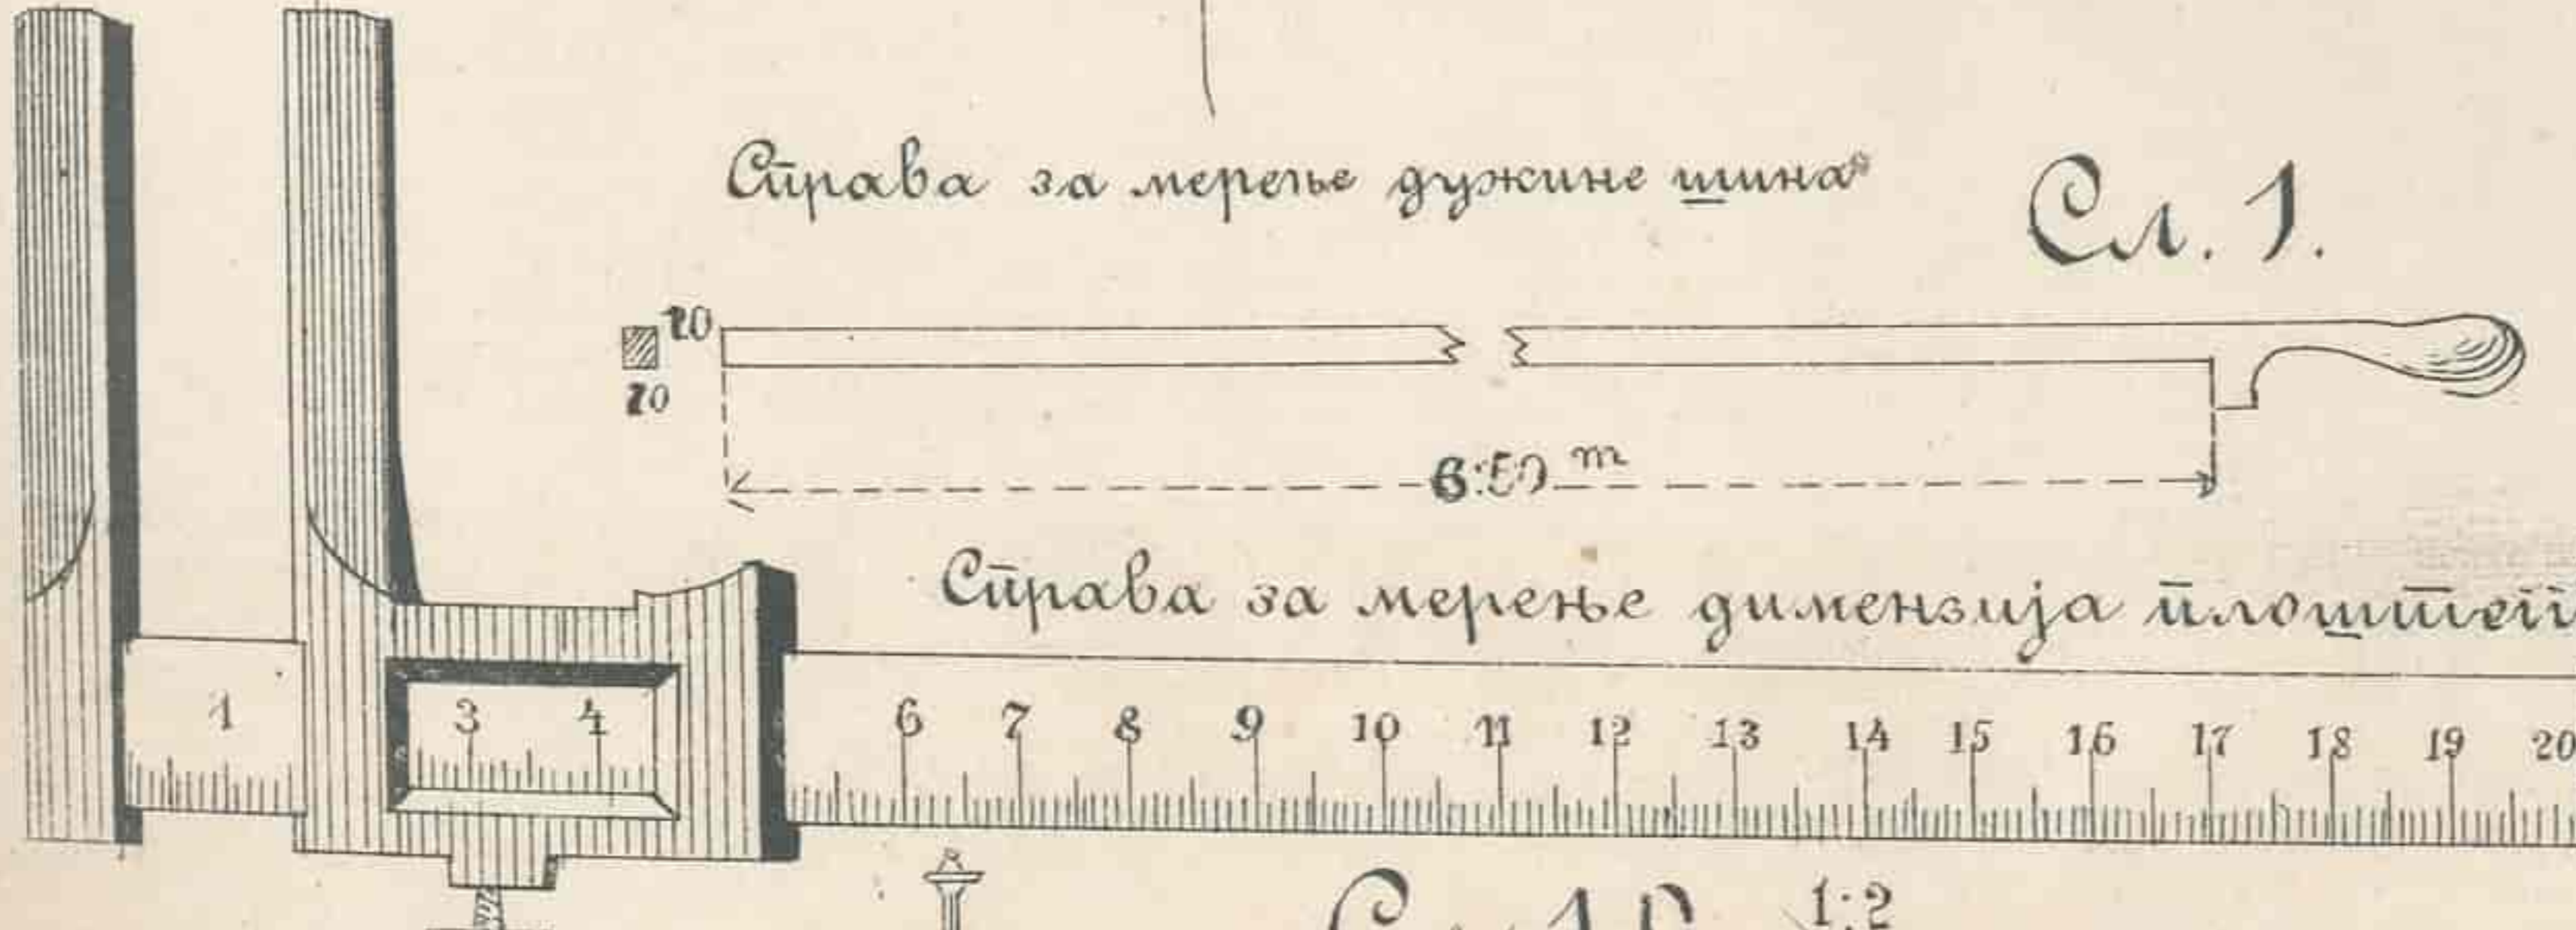 Справа за мерење дужине шина
Сл. 1.
20
20
6.50 m
Справа за мерење димензија
1 3 4 6 7 8 9 10 11 12 13 14 15 16 17 18 19 20
1:2